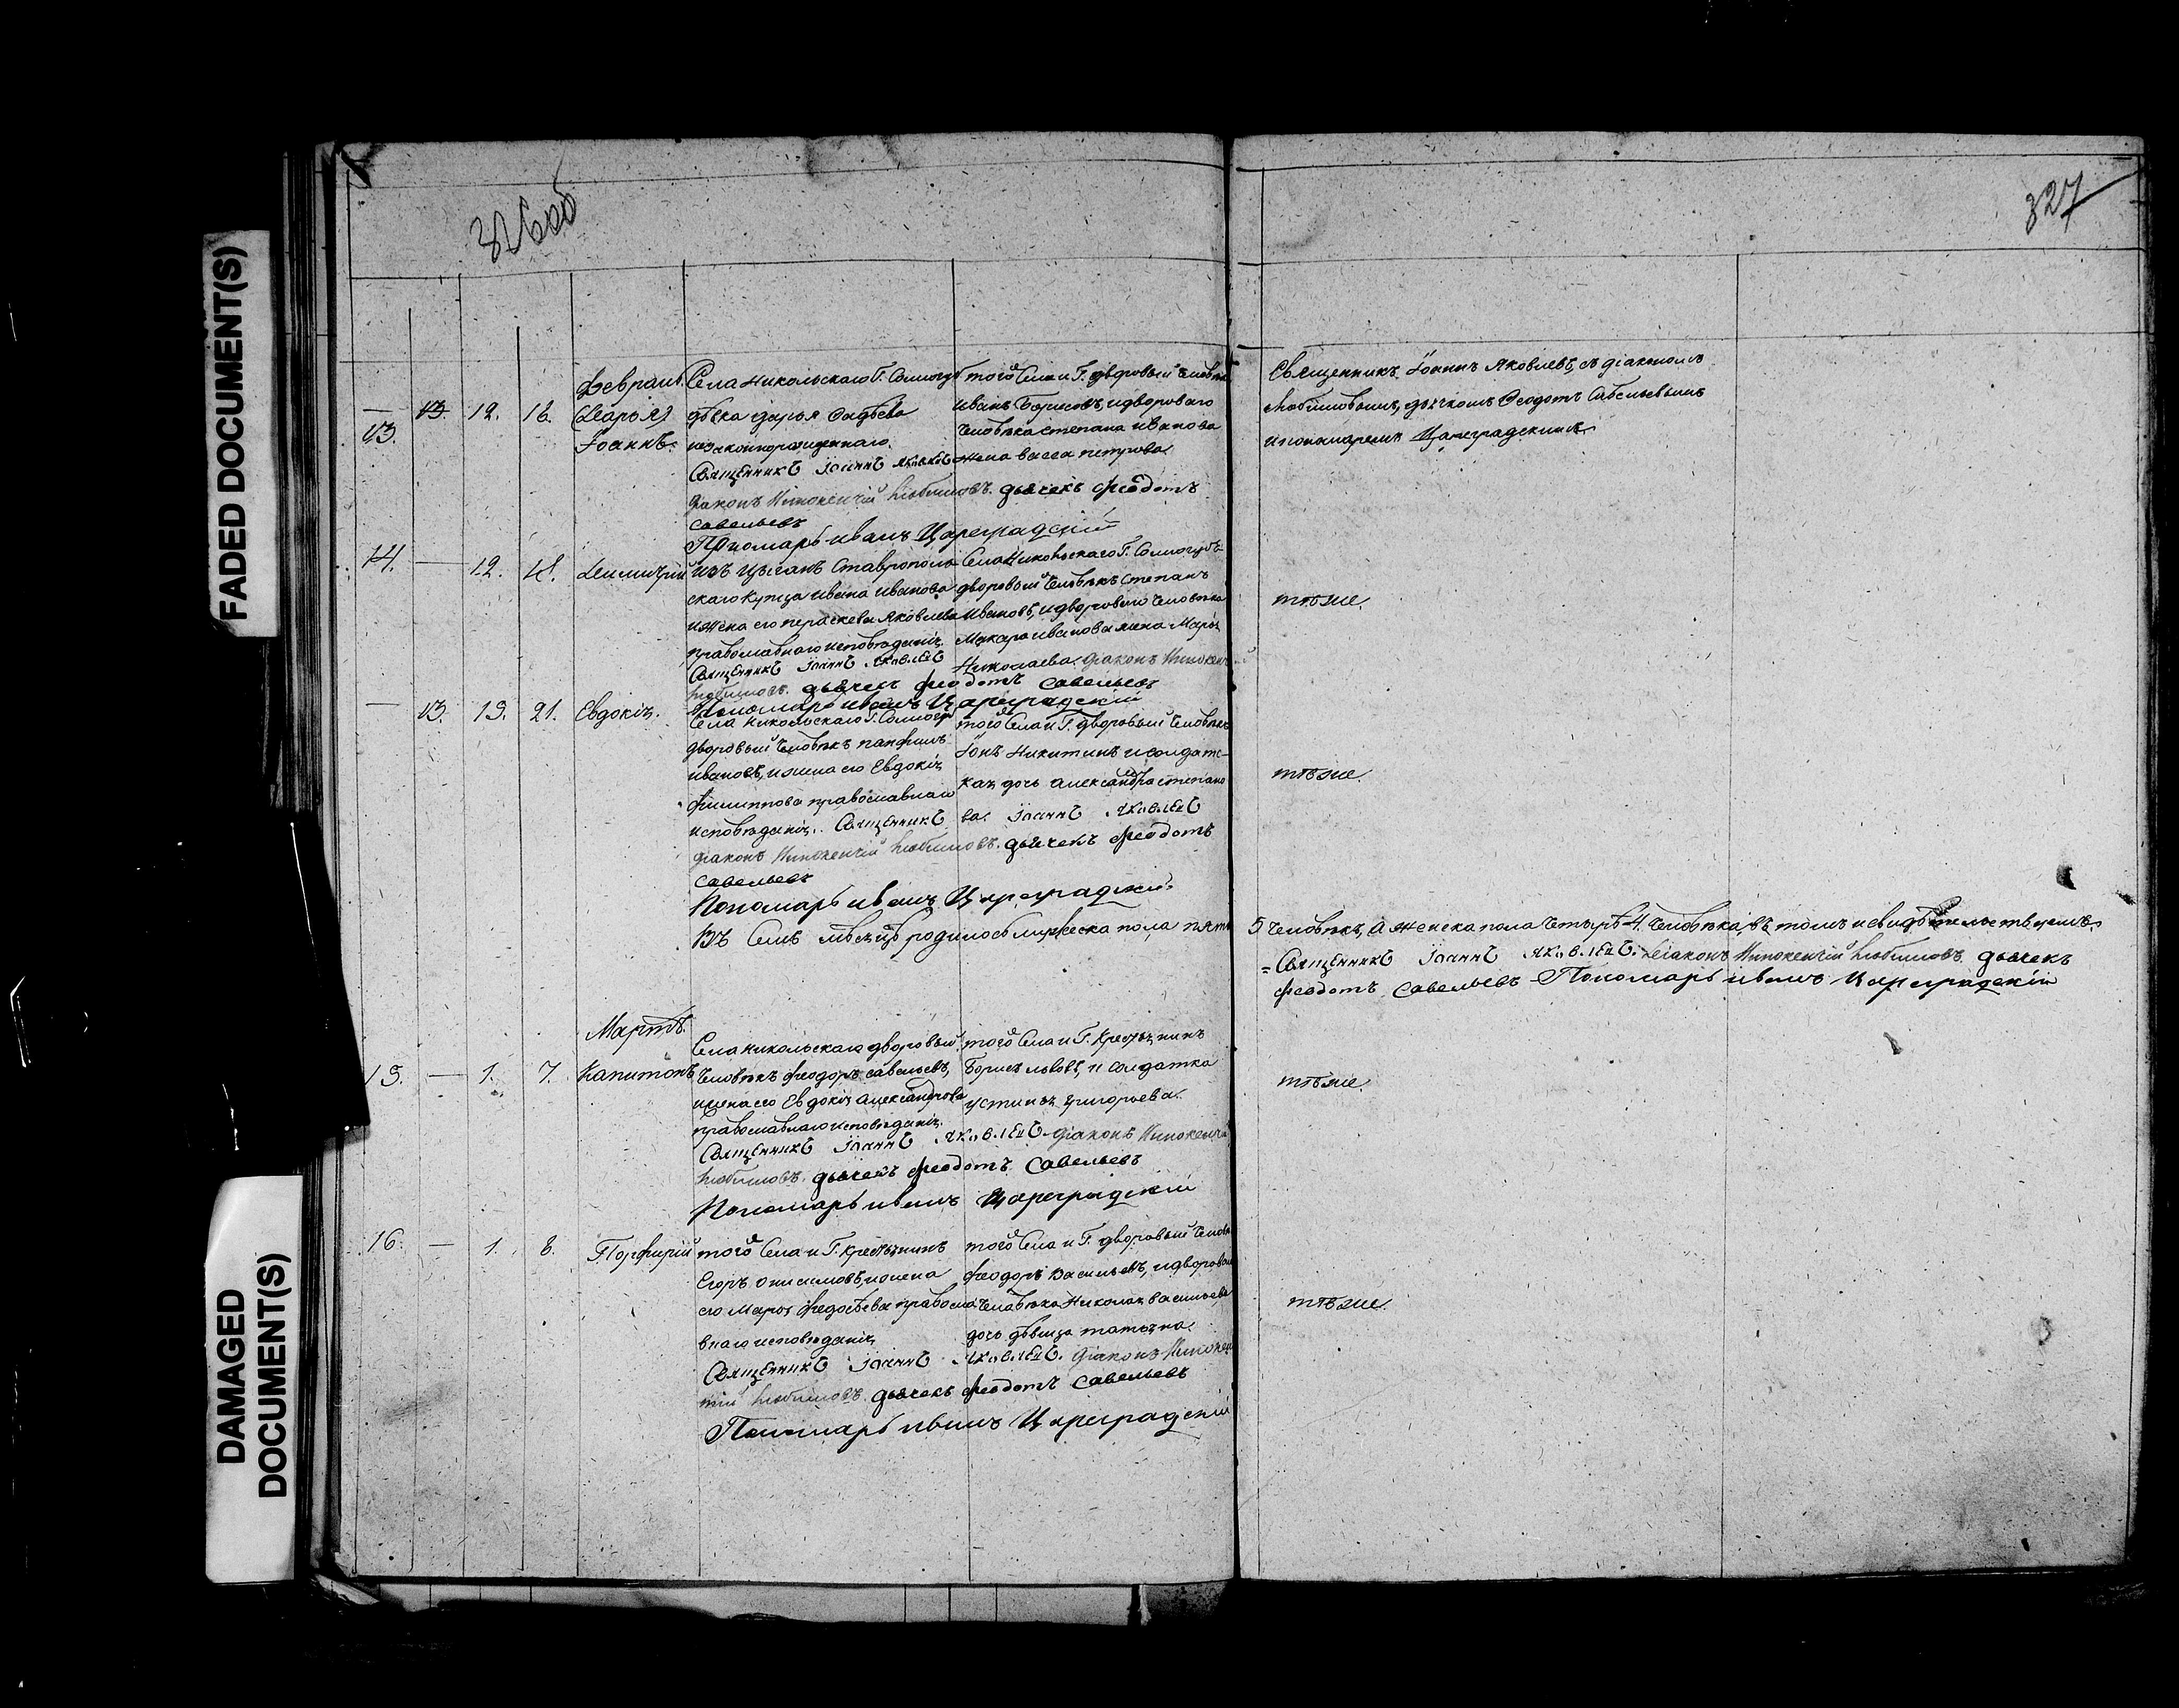 FADED DOCUMENT(S)
DAMAGED
DOCUMENT(S)
326об
327
Февраль
— 13. 12. 16. (Дарья)
13.
Іоаннъ.
Села Никольскаго Г. Сологубъ
дѣвка Дарья Фадѣева
незаконнорожденнаго.
Священникъ Іоаннъ Яковлевъ
Діаконъ Инокентій Любимовъ. дьячекъ Феодотъ
Савельевъ
Пономарь Иванъ Цареградскій
того Села и Г. дворовый человѣкъ
Иванъ Борисовъ, и двороваго
человѣка Степана Иванова
жена Васса Петрова.
Священникъ Іоаннъ Яковлевъ, съ діакономъ
Любимовымъ, дьячкомъ Феодотъ Савельевымъ
и пономаремъ Цареградскимъ.
14. — 12. 18. Димитрій
Изъ Цыганъ Ставрополь
скаго купца Ивана Иванова
и жена его Параскева Яковлева
православнаго исповѣданія.
Священникъ Іоаннъ Яковлевъ
Села Никольскаго Г. Сологубъ
дворовый человѣкъ Степанъ
Ивановъ, и двороваго человѣка
Макара Иванова жена Марья
Николаева. Діаконъ Инокен
Любимовъ. дьячекъ Феодотъ Савельевъ
Пономарь Иванъ Цареградскій
тѣже.
— 13. 19. 21. Евдокія.
Села Никольскаго Г. Сологубъ
дворовый человѣкъ Панфилъ
Ивановъ, и жена его Евдокія
Филиппова православнаго
исповѣданія. Священникъ
того Села и Г. дворовый человѣкъ
Іонъ Никитинъ и солдатс-
кая дочь Александра Степано
ва. Іоаннъ Яковлевъ
Діаконъ Инокентій Любимовъ. дьячекъ Феодотъ
Савельевъ
Пономарь Иванъ Цареградскій
тѣже.
Въ Семъ мѣсяцѣ родилось мужеска пола пять 5 человѣкъ, а женска пола четырѣ 4 человѣка, въ томъ и свидѣтельствуемъ.
Священникъ Іоаннъ Яковлевъ. Діаконъ Инокентій Любимовъ. дьячекъ
Феодотъ Савельевъ Пономарь Иванъ Цареградскій
Мартъ.
15. — 1. 7. Капитонъ
Села Никольскаго дворовый
человѣкъ Феодоръ Савельевъ,
и жена его Евдокія Александрова
православнаго исповѣданія.
того Села и Г. Крестьянинъ
Борисъ Львовъ, и солдатка
Устинья Григорьева.
Священникъ Іоаннъ Яковлевъ Діаконъ Инокентій
Любимовъ. дьячекъ Феодотъ Савельевъ
Пономарь Иванъ Цареградскій
тѣже.
16. — 1. 8. Порфирій
того Села и Г. Крестьянинъ
Егоръ Онисимовъ, и жена
его Марья Федосѣева правосла
внаго исповѣданія
того Села и Г. дворовый челов
Феодоръ Васильевъ, и дворова
человѣка Николая Васильева
дочь дѣвица Татьяна.
Священникъ Іоаннъ Яковлевъ. Діаконъ Инокен
тій Любимовъ. дьячекъ Феодотъ Савельевъ
Пономарь Иванъ Цареградскій
тѣже.